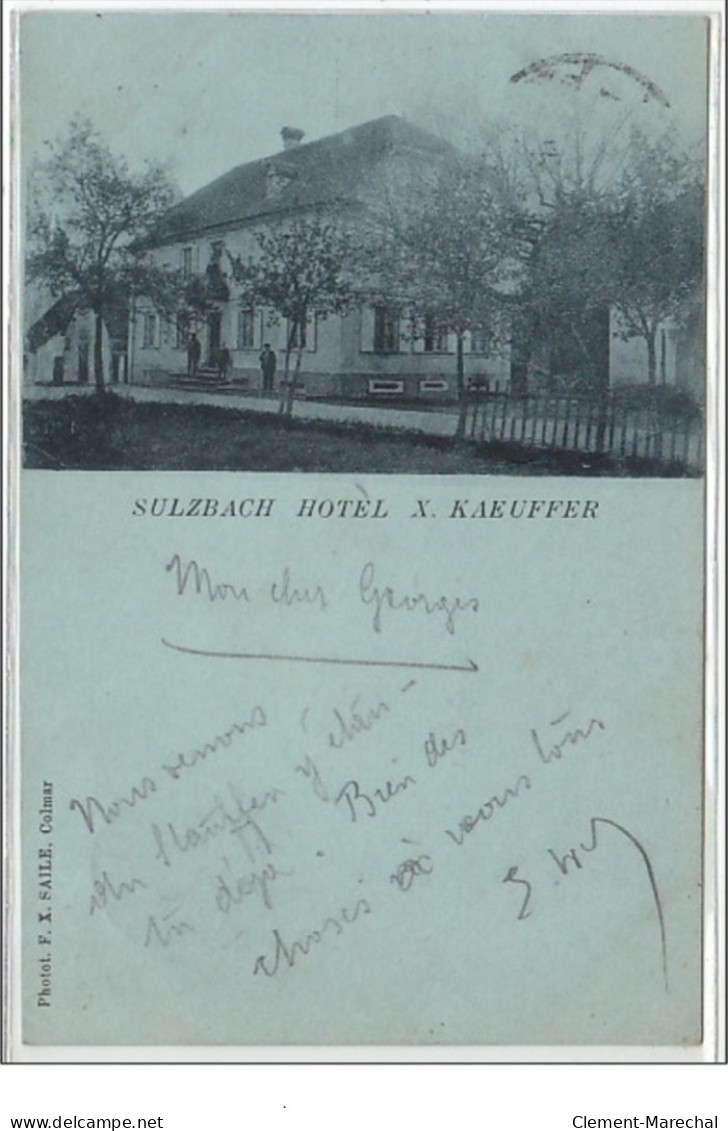 SULZBACH HOTEL X. KAEUFFER
Mon cher Georgis
Nous venons
du Stauffen y étan-
déjà. Bien des
choses à vous tous
Photot. F. X. SAILE, Colmar
Clement-Marechal